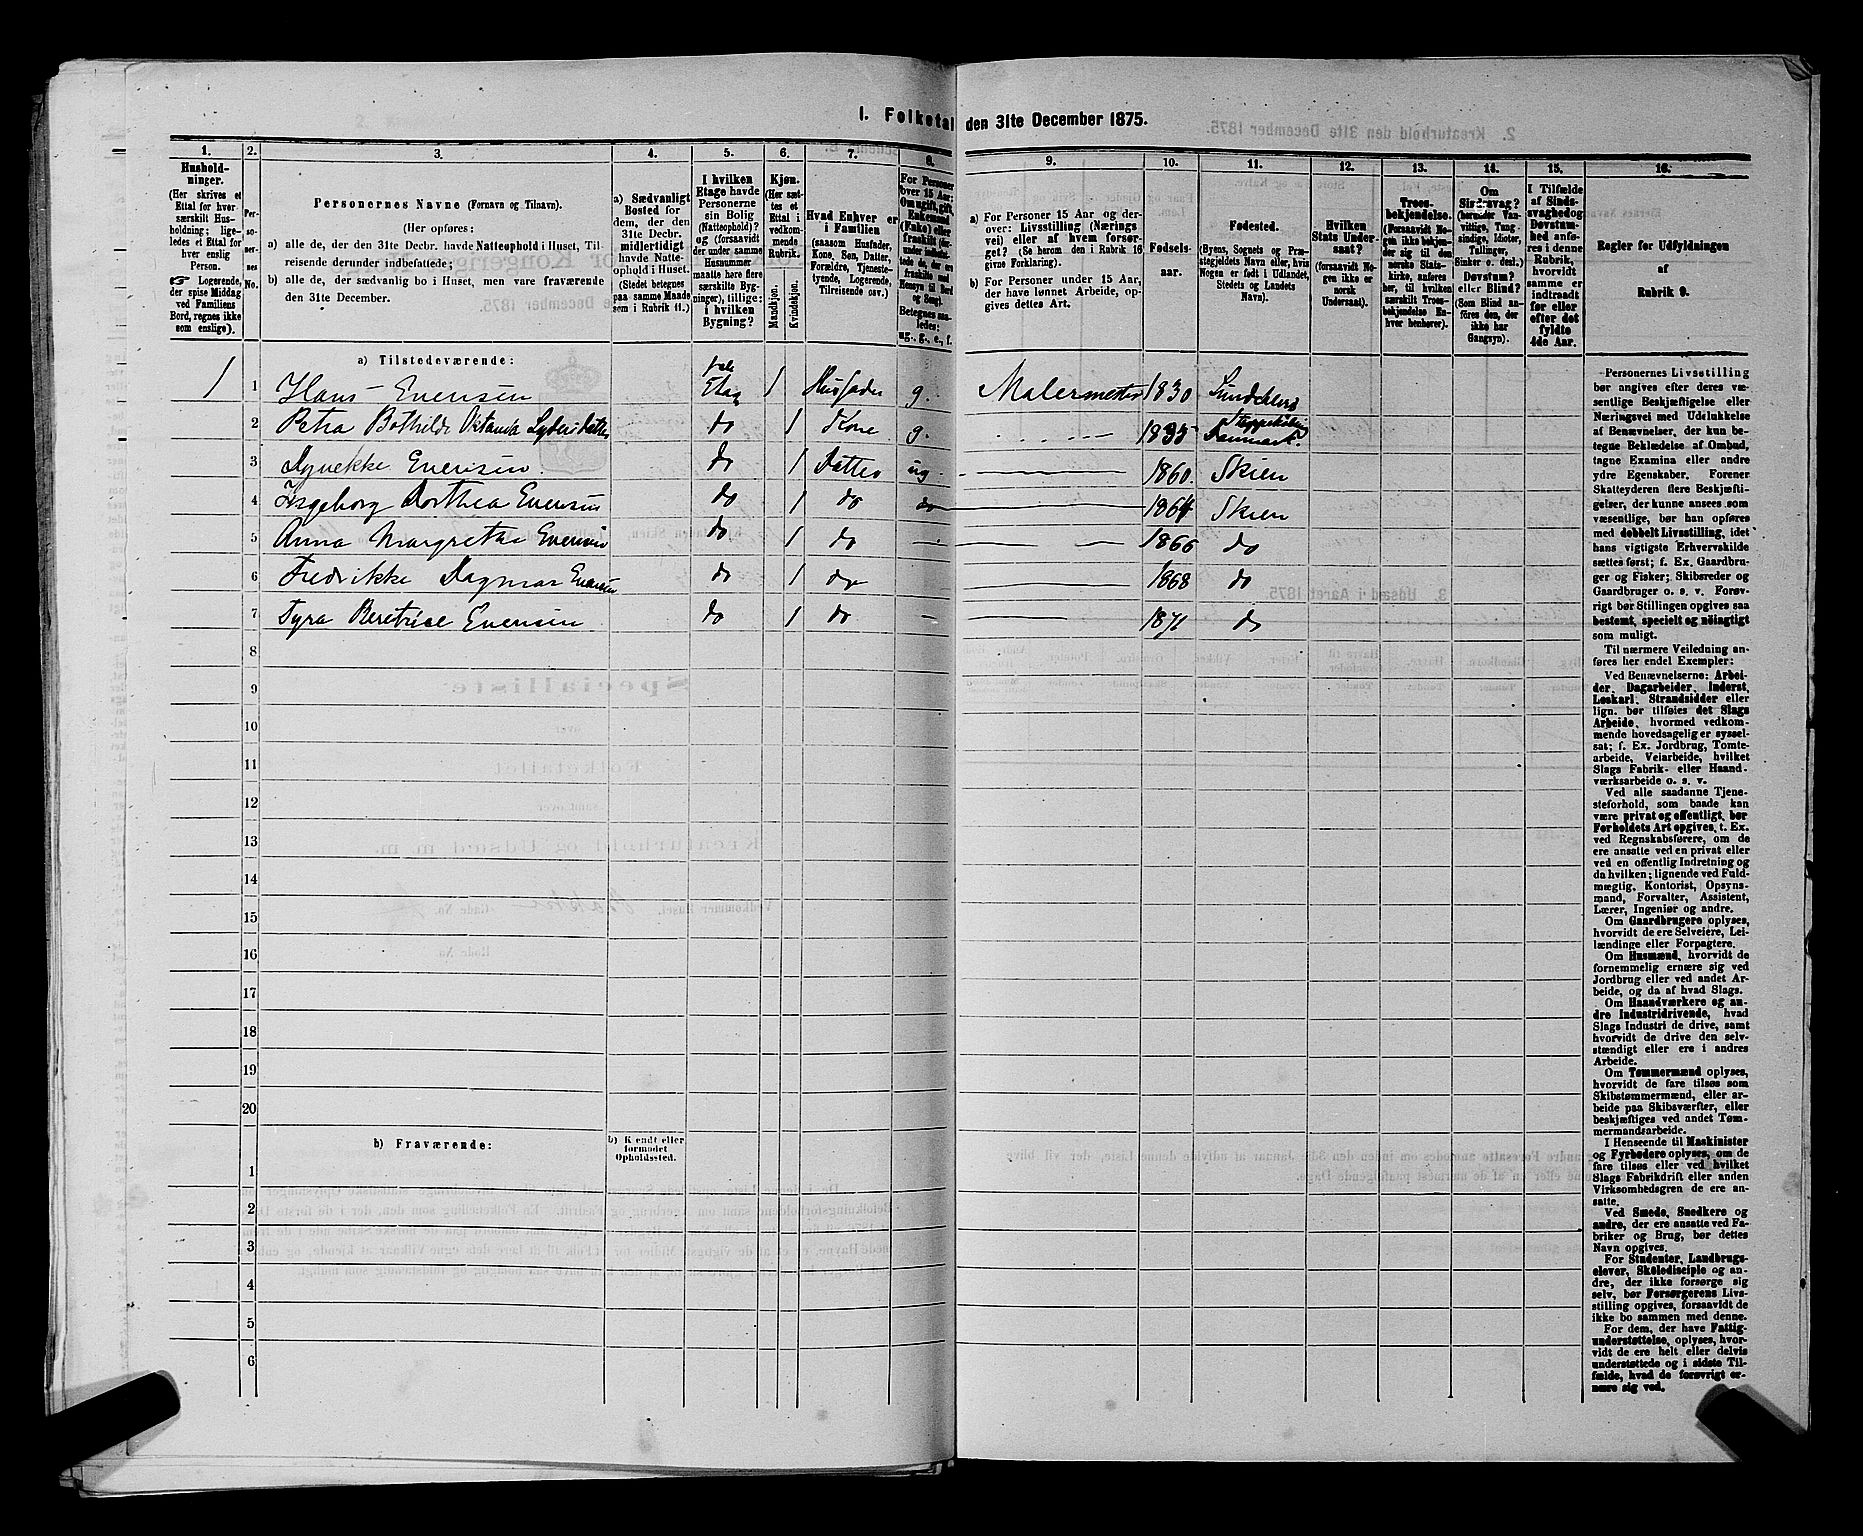 I. Folketal den 31te December 1875.
1. 2. 3. 4. 5. 6. 7. 8. 9. 10. 11. 12. 13. 14. 15. 16.
Hushold-
ninger.
(Her skrives et
Ettal for hver
særskilt Hus-
holdning; lige-
ledes et Ettal for
hver enslig
Person.
☞ Logerende,
der spise Middag
ved Familiens
Bord, regnes ikke
som enslige).
Per-
so-
ner-
nes
No.
Personernes Navne (Fornavn og Tilnavn).
(Her opføres:
a) alle de, der den 31te Decbr. havde Natteophold i Huset, Til-
reisende derunder indbefattede;
b) alle de, der sædvanlig bo i Huset, men vare fraværende
den 31te December.
a) Sædvanligt
Bosted for
dem, der den
31te Decbr.
midlertidigt
havde Natte-
ophold i Huset.
(Stedet betegnes
paa samme Maade
som i Rubrik 11.)
I hvilken
Etage havde
Personerne
sin Bolig
(Natteophold)?
og (forsaavidt
der under samme
Husnummer
maatte høre flere
særskilte Byg-
ninger), tillige:
i hvilken
Bygning?
Kjøn.
(Her sæt-
tes et
Ettal i
vedkom-
mende
Rubrik.)
Mandkjøn.
Kvindekjøn.
Hvad Enhver er
i Familien
(saasom Husfader,
Kone, Søn, Datter,
Forældre, Tjeneste-
tyende, Logerende,
Tilreisende osv.)
For Personer
over 15 Aar:
Om ugift, gift,
Enkemand
(Enke) eller
fraskilt
Betegnes saa-
ledes:
ug., g., e., f.
a) For Personer 15 Aar og der-
over: Livsstilling (Nærings
vei) eller af hvem forsør-
get? (Se herom den i Rubrik 16
givne Forklaring).
b) For Personer under 15 Aar,
der have lønnet Arbeide, op-
gives dettes Art.
Fødsels-
aar.
Fødested.
(Byens, Sognets og Præ-
stegjeldets Navn eller, hvis
Nogen er født i Udlandet,
Stedets og Landets
Navn).
Hvilken
Stats Under-
saat?
(forsaavidt No-
gen ikke er
norsk
Undersaat).
Troes-
bekjendelse.
(Forsaavidt No-
gen ikke bekjen-
der sig til den
norske Stats-
kirke, anføres
her, til hvilken
særskilt Troes-
bekjendelse En-
hver henhører).
Om
Sindssvag?
(herunder Van-
vittige, Tung-
sindige, Idioter,
Tullinger,
Sinker o. desl.)
Døvstum?
eller Blind?
(Som Blind an-
føres den, der
ikke har
Gangsyn).
I Tilfælde
af Sinds-
svaghed og
Døvstum-
hed anfø-
res i denne
Rubrik,
hvorvidt
samme er
indtraadt
før eller
efter det
fyldte
4de Aar.
Regler for Udfyldningen
af
Rubrik 9.
a) Tilstedeværende:
1 1 Hans Evensen Etag 1 Husfader g. Malermester 1830
2 Petra Bothilde do 1 Kone g. 1835 Danmark.
3 Dyvekke Evensen do 1 Datter ug 1860. Skien
4 Ingeborg Dorthea Evensen do 1 do do 1864 Skien
5 Anna Margrethe Evensen do 1 do 1866 do
6 Fredrikke Dagmar Evensen do 1 do 1868 do
7 Tyra Beretrice Evensen do 1 do 1871 do
8
9
10
11
12
13
14
15
16
17
18
19
20
b) Fraværende:
b) Kjendt eller
formodet
Opholdssted.
1
2
3
4
5
6
Personernes Livsstilling
bør angives efter deres væ-
sentlige Beskjæftigelse eller
Næringsvei med Udelukkelse
af Benævnelser, der kun be-
tegne Beklædelse af Ombud,
tagne Examina eller andre
ydre Egenskaber. Forener
Skatteyderen flere Beskjæfti-
gelser, der kunne ansees som
væsentlige, bør han opføres
med dobbelt Livsstilling, idet
hans vigtigste Erhvervskilde
sættes først; f. Ex. Gaardbru-
ger og Fisker; Skibsreder og
Gaardbruger o. s. v. Forøv-
rigt bør Stillingen opgives saa
bestemt, specielt og nøiagtigt
som muligt.
Til nærmere Veiledning an-
føres her endel Exempler:
Ved Benævnelserne: Arbei-
der, Dagarbeider, Inderst,
Løskarl, Strandsidder eller
lign. bør tilføies det Slags
Arbeide, hvormed vedkom-
mende hovedsagelig er syssel-
sat; f. Ex. Jordbrug, Tomte-
arbeide, Veiarbeide, hvilket
Slags Fabrik- eller Haand-
værksarbeide o. s. v.
Ved alle saadanne Tjene-
steforhold, som baade kan
være privat og offentligt, bør
Forholdets Art opgives, t. Ex.
ved Regnskabsførere, om de
ere ansatte ved en privat eller
ved en offentlig Indretning og
da hvilken; lignende ved Fuld-
mægtig, Kontorist, Opsyns-
mand, Forvalter, Assistent,
Lærer, Ingeniør og andre.
Om Gaardbrugere oplyses,
hvorvidt de ere Selveiere, Lei-
lændinge eller Forpagtere.
Om Husmænd, hvorvidt de
fornemmelig ernære sig ved
Jordbrug eller ved andet Ar-
beide, og da af hvad Slags.
Om Haandværkere og an-
dre Industridrivende, hvad
Slags Industri de drive, samt
hvorvidt de drive den selv-
stændigt eller ere i andres
Arbeide.
Om Tømmermænd oplyses,
hvorvidt de fare tilsøs som
Skibstømmermænd, eller ar-
beide paa Skibsværfter, eller
beskjæftiges ved andet Tøm-
mermandsarbeide.
I Henseende til Maskinister
og Fyrbødere oplyses, om de
fare tilsøs eller ved hvilket
Slags Fabrikdrift eller anden
Virksomhedsgren de ere an-
satte.
Ved Smede, Snedkere og
andre, der ere ansatte ved Fa-
briker og Brug, bør dettes
Navn opgives.
For Studenter, Landbrugs-
elever, Skoledisciple og an-
dre, der ikke forsørge sig
selv, bør Forsørgerens Livs-
stilling opgives, forsaavidt de
ikke bo sammen med denne.
For dem, der have Fattig-
understøttelse, oplyses, hvor-
vidt de ere helt eller delvis
understøttede og i sidste Til-
fælde, hvad de forøvrigt er-
nære sig ved.